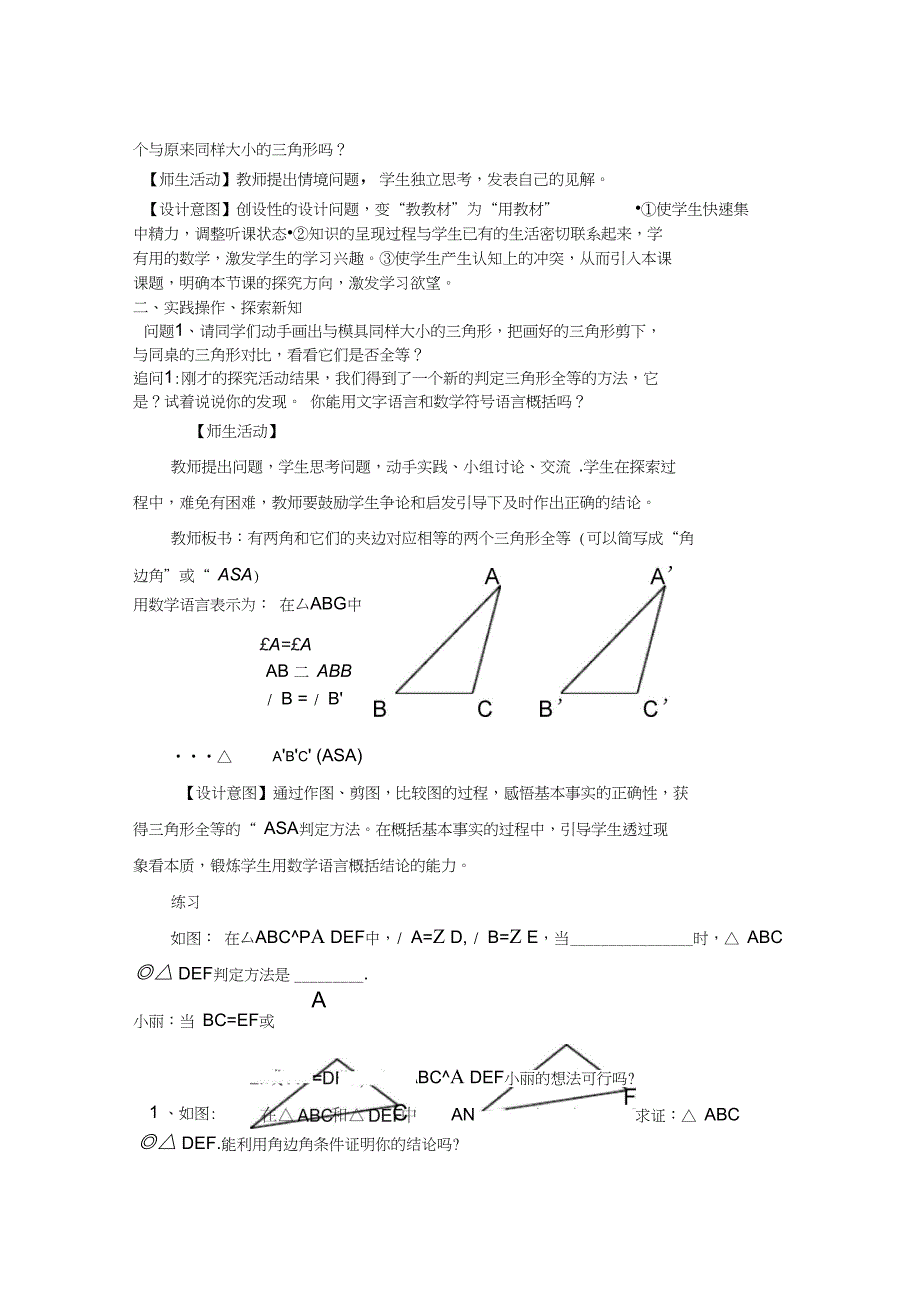 个与原来同样大小的三角形吗？
【师生活动】教师提出情境问题，学生独立思考，发表自己的见解。
【设计意图】创设性的设计问题，变“教教材”为“用教材” •①使学生快速集
中精力，调整听课状态•②知识的呈现过程与学生已有的生活密切联系起来，学
有用的数学，激发学生的学习兴趣。③使学生产生认知上的冲突，从而引入本课
课题，明确本节课的探究方向，激发学习欲望。
二、实践操作、探索新知
问题1、请同学们动手画出与模具同样大小的三角形，把画好的三角形剪下，
与同桌的三角形对比，看看它们是否全等？
追问1:刚才的探究活动结果，我们得到了一个新的判定三角形全等的方法，它
是？试着说说你的发现。 你能用文字语言和数学符号语言概括吗？
【师生活动】
教师提出问题，学生思考问题，动手实践、小组讨论、交流 .学生在探索过
程中，难免有困难，教师要鼓励学生争论和启发引导下及时作出正确的结论。
教师板书：有两角和它们的夹边对应相等的两个三角形全等 (可以简写成“角
边角”或“ ASA)
用数学语言表示为： 在厶ABG中
£A=£A
AB 二 ABB
/ B = / B'
A
B
C
A’
B’
C’
・・・△ A'B'C' (ASA)
【设计意图】通过作图、剪图，比较图的过程，感悟基本事实的正确性，获
得三角形全等的“ ASA判定方法。在概括基本事实的过程中，引导学生透过现
象看本质，锻炼学生用数学语言概括结论的能力。
练习
如图： 在厶ABC^PA DEF中，/ A=Z D, / B=Z E，当________________时，△ ABC
◎△ DEF判定方法是 _________.
A
小丽：当 BC=EF或
ABC^A DEF小丽的想法可行吗?
F
1 、如图: 在△ ABC和△ DEF中 AN 求证：△ ABC
C
◎△ DEF.能利用角边角条件证明你的结论吗?